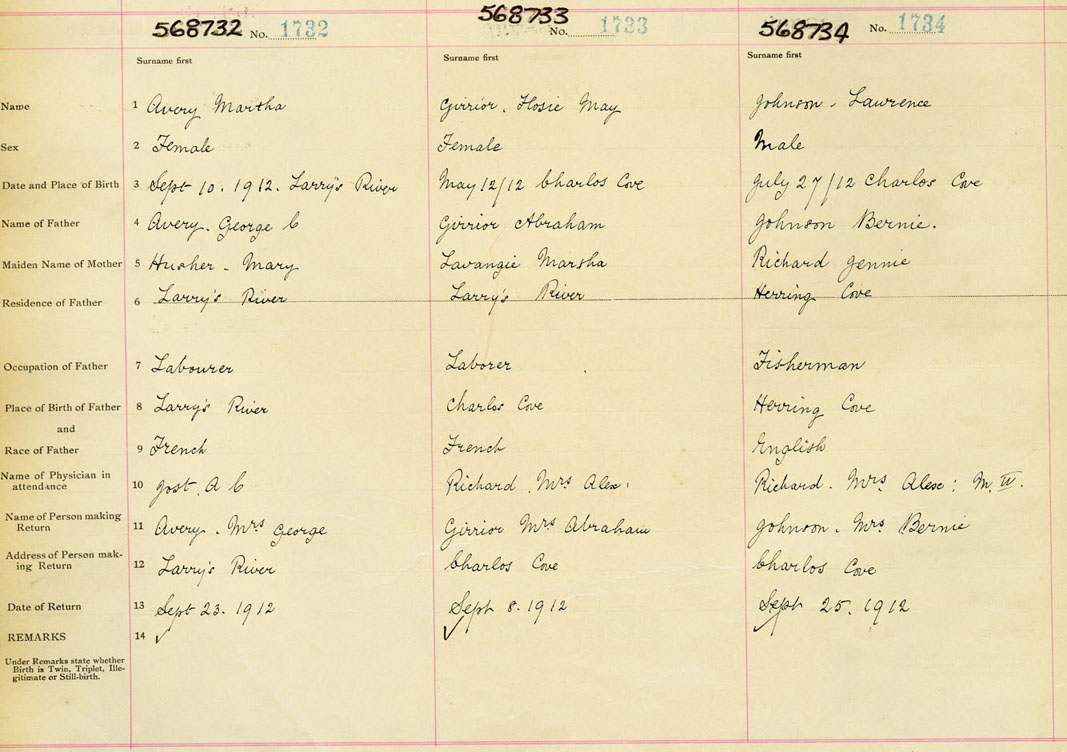 568732 No. 1732 568733 No. 1733 568734 No. 1734
Surname first Surname first Surname first
Name 1 Avery Martha Girrior. Flosie May Johnson - Lawrence
Sex 2 Female Female Male
Date and Place of Birth 3 Sept 10. 1912. Larry's River May 12/12 Charlos Cove July 27/12 Charlos Cove
Name of Father 4 Avery. George C Girrior Abraham Johnson Bernie.
Maiden Name of Mother 5 Husher - Mary Lavangie Martha Richard Jennie
Residence of Father 6 Larry's River Larry's River Herring Cove
Occupation of Father 7 Labourer Laborer Fisherman
Place of Birth of Father 8 Larry's River Charlos Cove Herring Cove
and
Race of Father 9 French French English
Name of Physician in
attendance 10 Jost. A C Richard. Mrs Alex: Richard. Mrs Alex: M.W.
Name of Person making
Return 11 Avery. Mrs George Girrior Mrs Abraham Johnson. Mrs Bernie
Address of Person mak-
ing Return 12 Larry's River Charlos Cove Charlos Cove
Date of Return 13 Sept 23. 1912 Sept 8. 1912 Sept 25. 1912
REMARKS 14 ✓ ✓ ✓
Under Remarks state whether
Birth is Twin, Triplet, Ille-
gitimate or Still-birth.